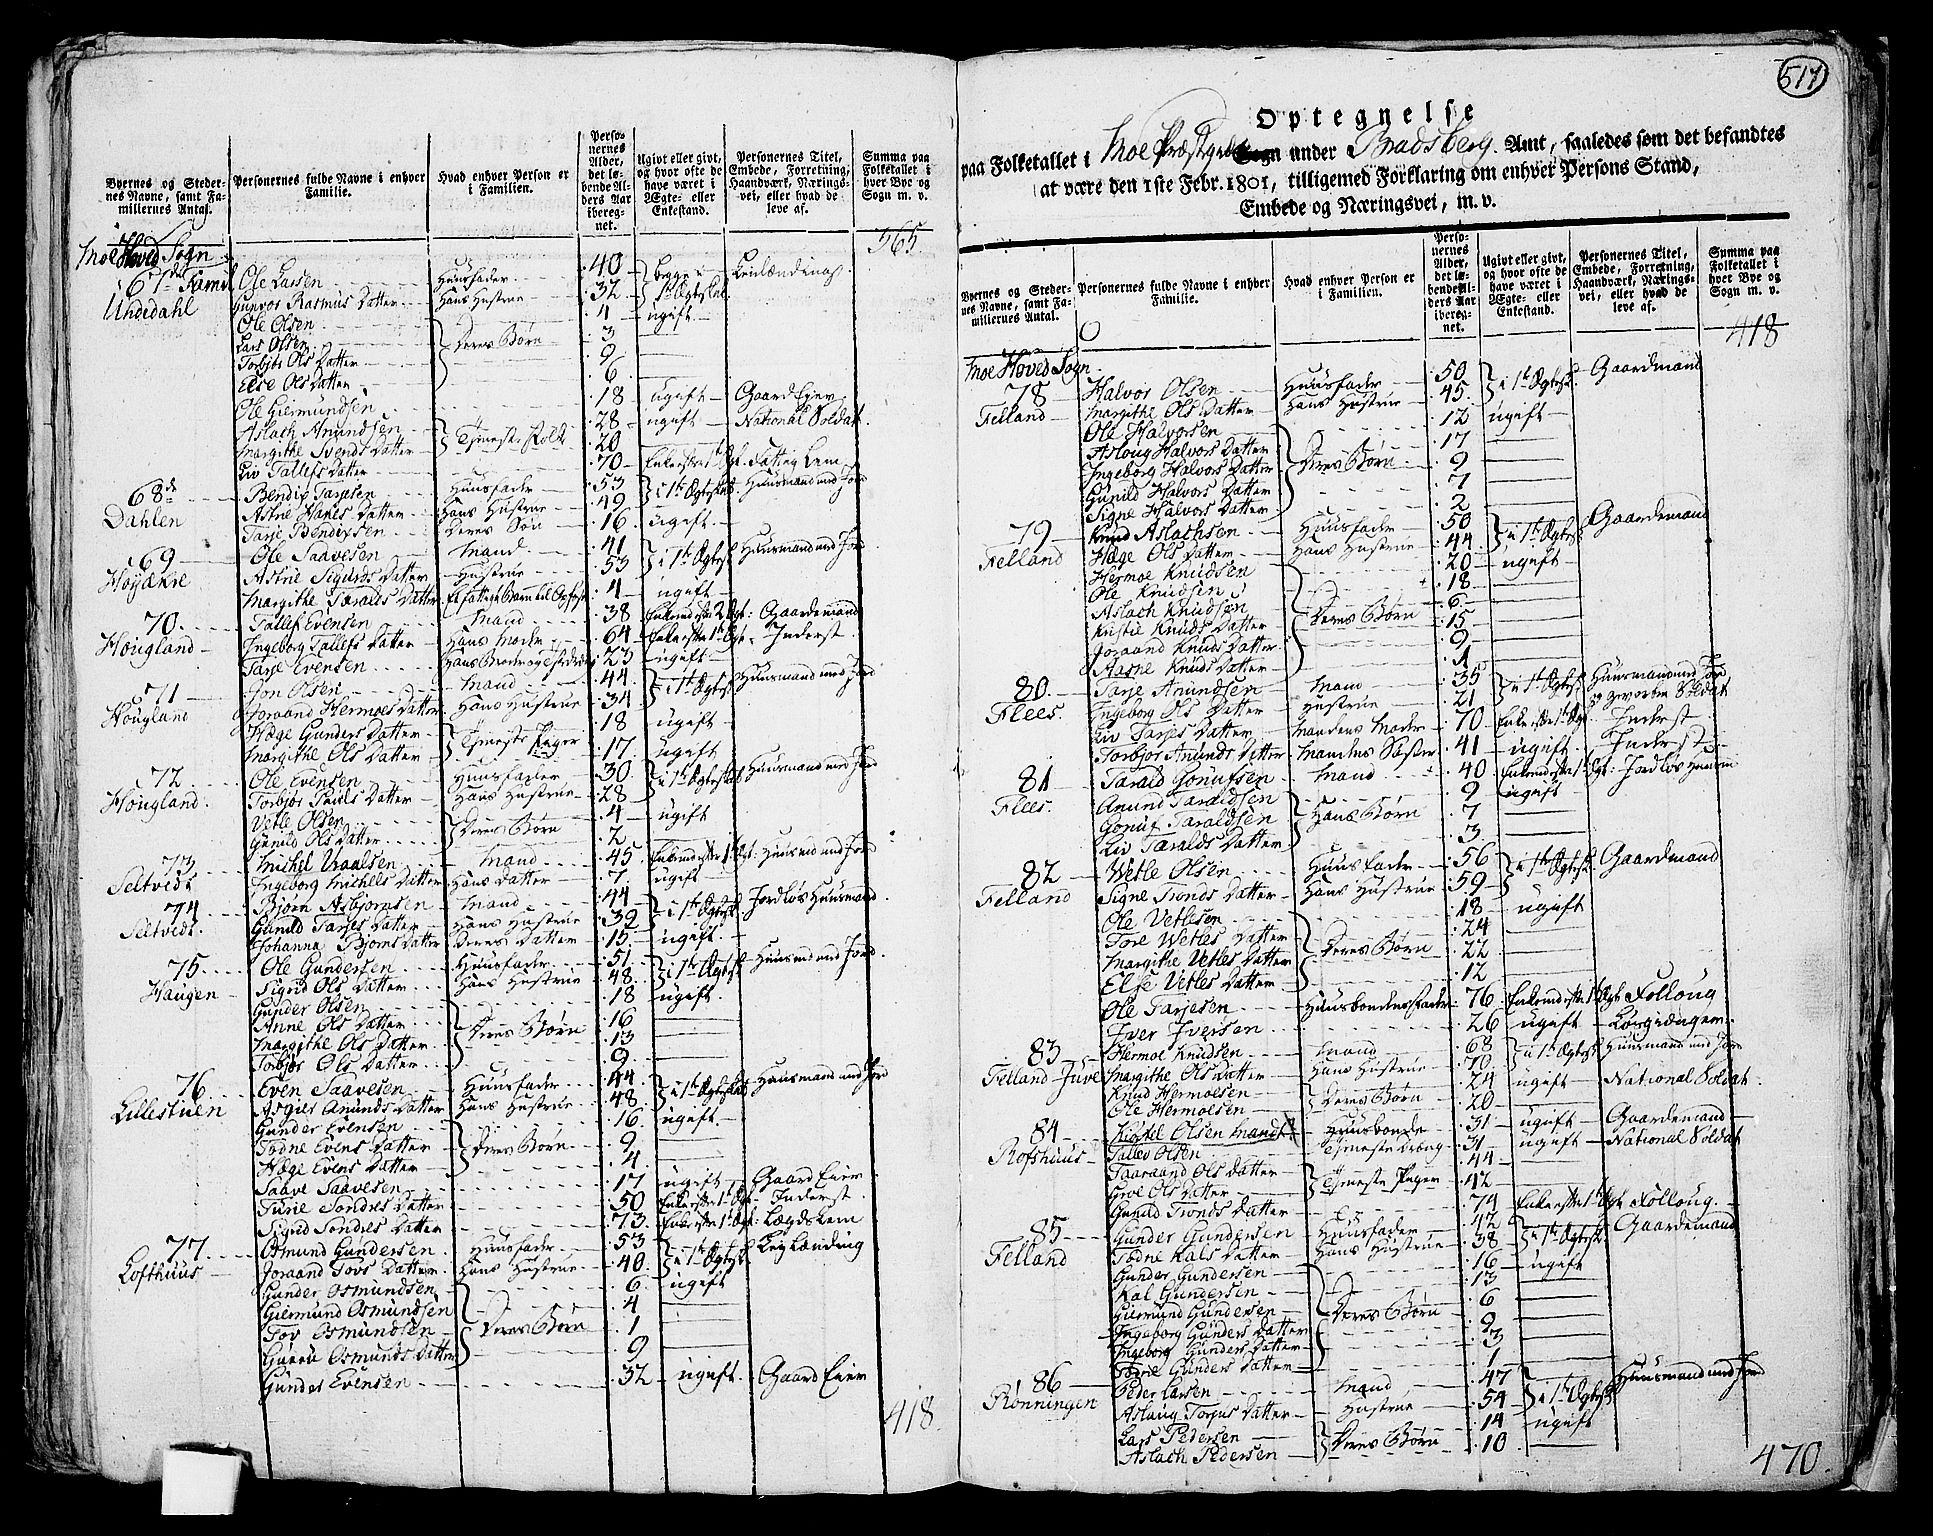 Byernes og Stedernes Navne, samt Familiernes Antal.
Personernes fulde Navne i enhver Familie.
Hvad enhver Person er i Familien.
Personernes Alder, det løbende Alders Aar iberegnet.
Ugivt eller givt, og hvor ofte de have været i Ægte- eller Enkestand.
Personernes Titel, Embede, Forretning, Haandværk, Næringsvei, eller hvad de leve af.
Summa paa Folketallet i hver Bye og Sogn m. v.
565
Moe Hoved Sogn
67de Famil. Ole Larsen Huusfader 40 begge i 1te Ægtesk.
Uhdedahl Gunvor Rasmus Datter Hans Hustrue 32
Ole Olsen 4 ugift
Lars Olsen Deres Børn 3
Torbjør Ols Datter 9
Else Ols Datter 6
Ole Giermundsen 18 ugift Gaard Eyer
Aslach Anundsen Tjeneste Folk 28 ugift National Soldat
Margithe Svends Datter 20
Liv Tallefs Datter 70 Enke efter 1te Ægt. Fattig Lem
68de Bendix Tarjesen Huusfader 53 i 1te Ægtesk. Huusmand med Jord
Dahlen Astrie Hanes Datter Hans Hustrue 49
Tarje Bendixsen Deres Søn 16 ugift
69 Ole Saavesen Mand 41 i 1te Ægtesk. Huusmand med Jord
Høyækre Astrie Sigurds Datter Hustrue 53
Margithe Taralds Datter Et fattigt Barn til Opfost. 4 ugift
70 Tallef Evensen Mand 38 Enkem. efter 2 Ægt. Gaardemand
Hougland Ingeborg Tallefs Datter Hans Moder 64 Enke efter 1te Ægt. Inderst
Tarje Evensen 23 ugift
71 Jon Olsen Mand 44 i 1te Ægtesk. Huusmand med Jord
Hougland Joraand Hermoes Datter Hans Hustrue 34
Hæge Gunders Datter Tjeneste Piger 18 ugift
Margithe Ols Datter 17 ugift
72 Ole Evensen Huusfader 30 i 1te Ægtesk. Huusmand med Jord
Hougland Torbjør Pauls Datter Hans Hustrue 28
Vetle Olsen Deres Børn 4 ugift
Gunild Ols Datter 2
73 Michel Vraalsen Mand 45 Enkemd. efter 1te Ægt. Huusmd med Jord
Seltvedt Ingeborg Michels Datter Hans Datter 7 ugift
74 Bjørn Asbjørnsen Mand 44 i 1te Ægtesk. Jordløs Huusmand
Seltvedt Gunild Tarjes Datter Hans Hustrue 39
Johanna Bjørns Datter Deres Datter 15 ugift
75 Ole Gundersen Huusfader 51 i 1te Ægtesk. Huusmd med Jord
Haugen Sigrid Ols Datter Hans Hustrue 48
Gunder Olsen 18 ugift
Anne Ols Datter Deres Børn 16
Margithe Ols Datter 13
Torbjør Ols Datter 9
76 Even Saavesen Huusfader 44 i 1te Ægtesk. Huusmand med Jord
Lillestuen Asgier Anunds Datter Hans Hustrue 48
Gunder Evensen 16 ugift
Todne Evens Datter Deres Børn 9
Hæge Evens Datter 4
Saave Saavesen 17 ugift Gaard Eier
Turie Sondres Datter 50 Enke efter 1te Ægt. Inderst
Sigrid Sondres Datter 73 Enke efter 1te Ægt. Lægdslem
77 Osmund Gundersen Huusfader 53 i 1te Ægtesk. Leylænding
Lofthuus Joraand Tovs Datter Hans Hustrue 40
Gunder Osmundsen 6 ugift
Giermund Osmundsen Deres Børn 4
Tov Osmundsen 1
Gurru Osmunds Datter 9
Gunder Evensen 32 ugift Gaard Eier
418
517
Optegnelse
paa Folketallet i Moe Præstegield under Bradsberg Amt, saaledes som det befandtes
at være den 1ste Febr. 1801, tilligemed Forklaring om enhver Persons Stand,
Embede og Næringsvei, m. v.
Byernes og Stedernes Navne, samt Familiernes Antal.
Personernes fulde Navne i enhver Familie.
Hvad enhver Person er i Familien.
Personernes Alder, det løbende Alders Aar iberegnet.
Ugivt eller givt, og hvor ofte de have været i Ægte- eller Enkestand.
Personernes Titel, Embede, Forretning, Haandværk, Næringsvei, eller hvad de leve af.
Summa paa Folketallet i hver Bye og Sogn m. v.
418
Moe Hoved Sogn
78 Halvor Olsen Huusfader 50 i 1te Ægtesk. Gaardmand
Felland Margithe Ols Datter Hans Hustrue 45
Ole Halvorsen 12 ugift
Asloug Halvors Datter 17
Ingeborg Halvors Datter Deres Børn 9
Gunild Halvors Datter 7
Signe Halvors Datter 2
79 Knud Aslachsen Huusfader 50 i 1te Ægtesk. Gaardemand
Felland Hæge Ols Datter Hans Hustrue 44
Hermoe Knudsen 20 ugift
Ole Knudsen 18
Aslach Knudsen Deres Børn 6
Kristie Knuds Datter 15
Joraand Knuds Datter 9
Aasne Knuds Datter 1
80 Tarje Anundsen Mand 35 i 1te Ægtesk. Huusmand med Jord og geworben Soldat
Flees Ingeborg Ols Datter Hustrue 21
Liv Tarjes Datter Mandens Moder 70 Enke efter 1te Ægt. Inderst
Torbjør Anunds Datter Mandens Søster 41 ugift Inderst
81 Tarald Gonufsen Mand 40 Enkemd efter 1te Ægt. Jordløs Huusm
Flees Anund Taraldsen 9 ugift
Gonuf Taraldsen Hans Børn 7
Liv Taralds Datter 3
82 Wetle Olsen Huusfader 56 i 1te Ægtesk. Gaardmand
Felland Signe Tronds Datter Hans Hustrue 59
Ole Vetlesen 18 ugift
Tore Wetles Datter Deres Børn 24
Margithe Vetles Datter 22
Else Vetles Datter 12
Ole Tarjesen Huusbondens Fader 76 Enkemd efter 1te Ægt. Følloug
Iver Iversen 26 ugift
83 Hermoe Knudsen Mand 68 i 1te Ægtesk. Huusmand med Jord
Felland Juve Margithe Ols Datter Hans Hustrue 70
Knud Hermoesen Deres Børn 24 ugift National Soldat
Ole Hermoesen 20
84 Kiøstel Olsen Huusbonde 31 ugift Gaardemand
Rofshuus Tallev Olsen Tjeneste Dreng 31 ugift National Soldat
Taaraand Ols Datter Tjeneste Piger 44
Groe Ols Datter 42
Gunild Tronds Datter 74 Enke efter 1te Ægt. Følloug
85 Gunder Gundersen Huusfader 42 i 1te Ægtesk. Gaardemand
Felland Todne Kals Datter Hans Hustrue 38
Gunder Gundersen 16 ugift
Kal Gundersen 13
Giermund Gundersen Deres Børn 6
Ingeborg Gunders Datter 9
Ingeborg Gunders Datter 3
Torne Gunders Datter 1
86 Peder Larsen Mand 47 i 1te Ægtesk. Huusmand med Jord
Rønningen Aslaug Torjus Datter Hustrue 54
Lars Pedersen Deres Børn 14 ugift
Aslach Pedersen 10
470